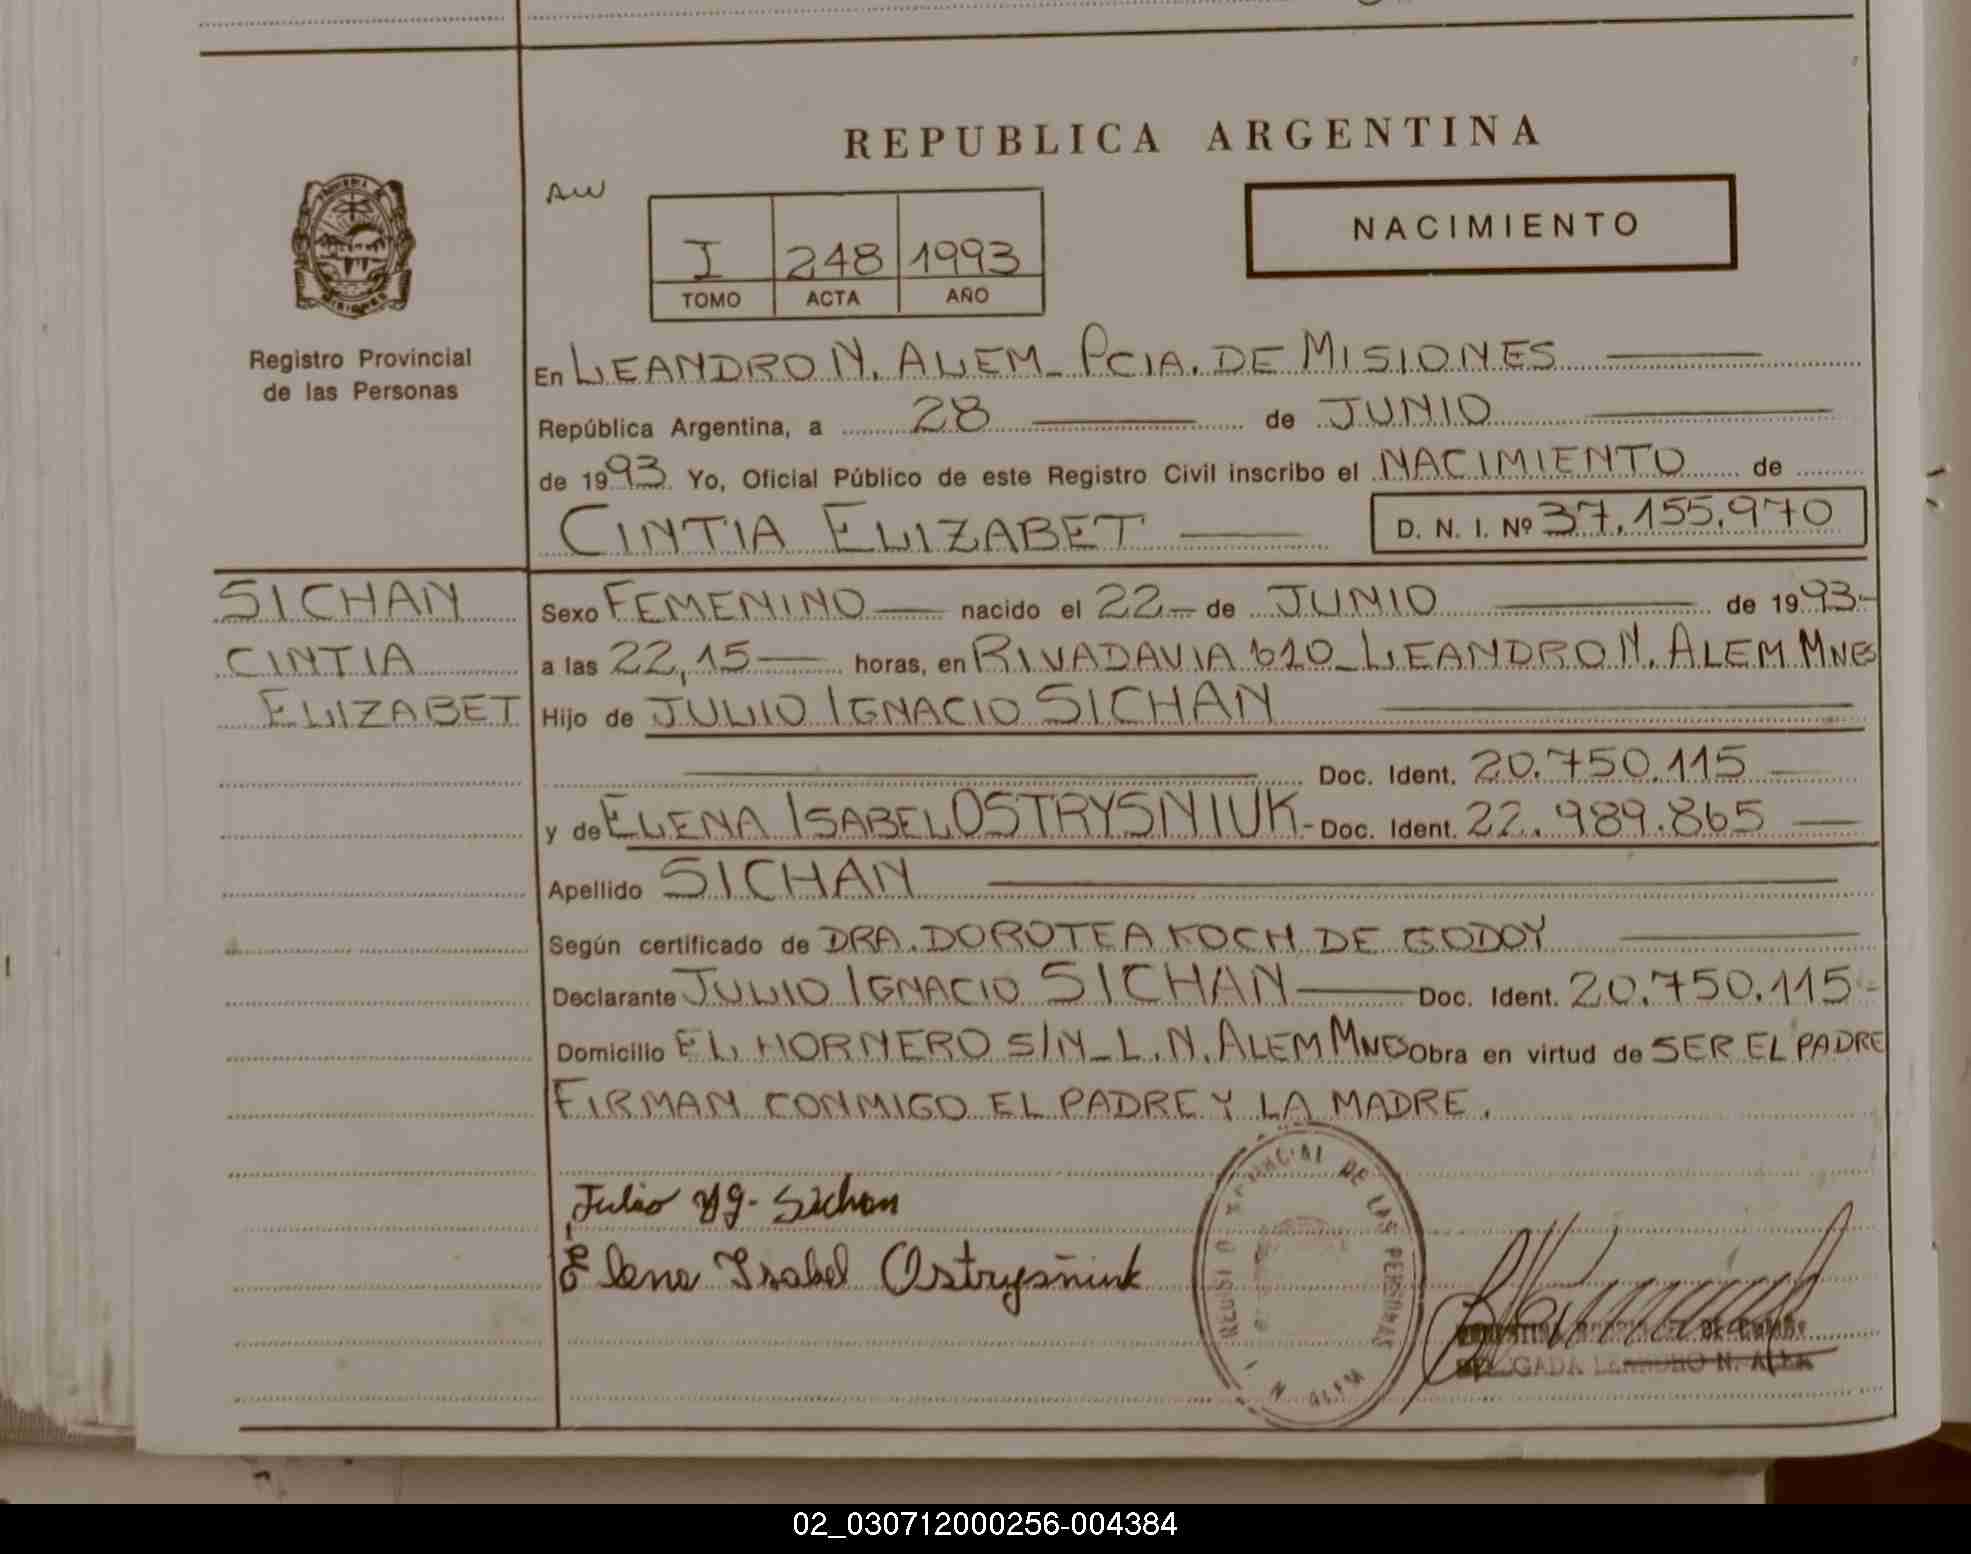 REPUBLICA ARGENTINA
AW
I 248 1993
TOMO ACTA AÑO
NACIMIENTO
Registro Provincial
de las Personas
En LEANDRO N. ALEM_ PCIA. DE MISIONES
República Argentina, a 28 de JUNIO
de 1993. Yo, Oficial Público de este Registro Civil inscribo el NACIMIENTO de
CINTIA ELIZABET D. N. I. Nº 37.155.970
SICHAN
CINTIA
ELIZABET
Sexo FEMENINO nacido el 22 de JUNIO de 1993-
a las 22,15 horas, en RIVADAVIA 620_LEANDRO N. ALEM MNES
Hijo de JULIO IGNACIO SICHAN
Doc. Ident. 20.750.115
y de ELENA ISABEL OSTRYSNIUK- Doc. Ident. 22.989.865
Apellido SICHAN
Según certificado de DRA. DOROTEA KOCH DE GODOY
Declarante JULIO IGNACIO SICHAN Doc. Ident. 20.750.115-
Domicilio EL HORNERO S/N_L.N. ALEM MNES Obra en virtud de SER EL PADRE
FIRMAN CONMIGO EL PADRE Y LA MADRE.
Julio Yg. Sichan
Elena Isabel Ostrysñiuk
REGISTRO PROVINCIAL DE LAS PERSONAS
N. ALEM
DELEGADA LEANDRO N. ALEM
02_030712000256-004384